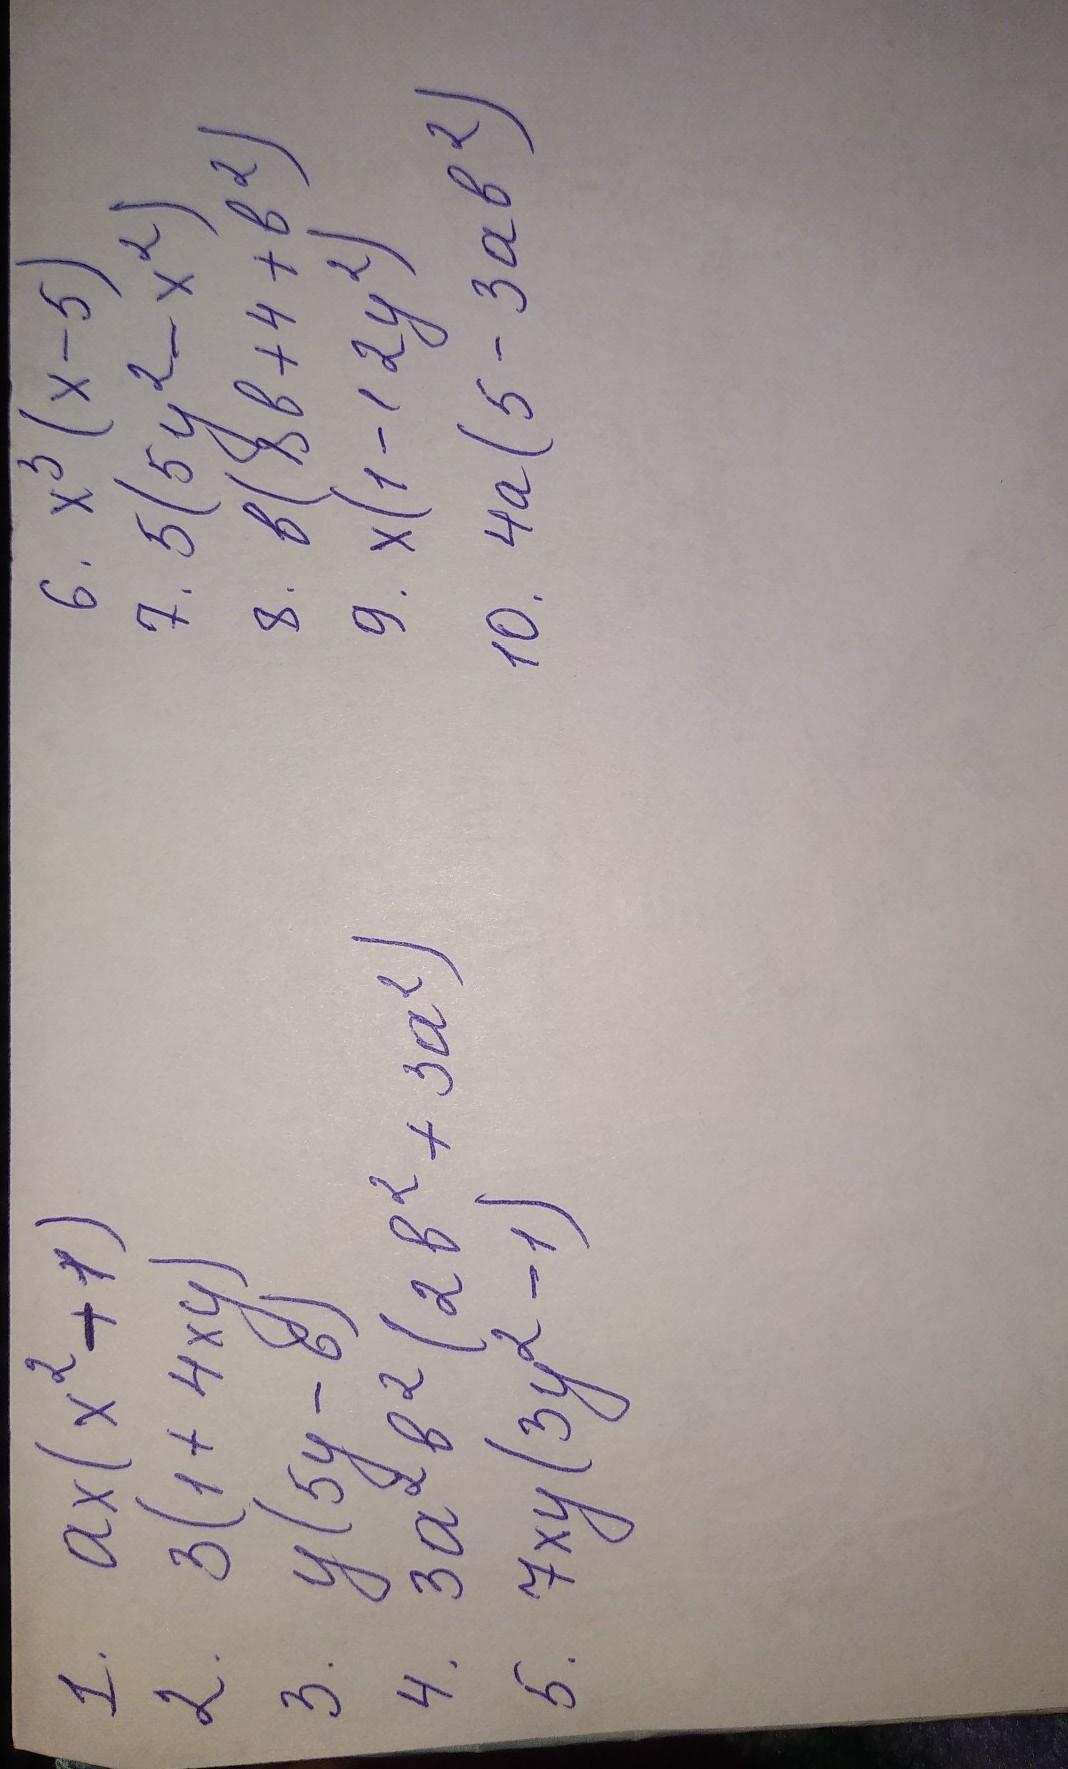 1. ax(x²+1)
2. 3(1+4xy)
3. y(5y-6)
4. 3a²b²(2b²+3a²)
5. 7xy(3y²-1)
6. x³(x-5)
7. 5(5y²-x²)
8. b(8b+4+b²)
9. x(1-12y²)
10. 4a(5-3ab²)